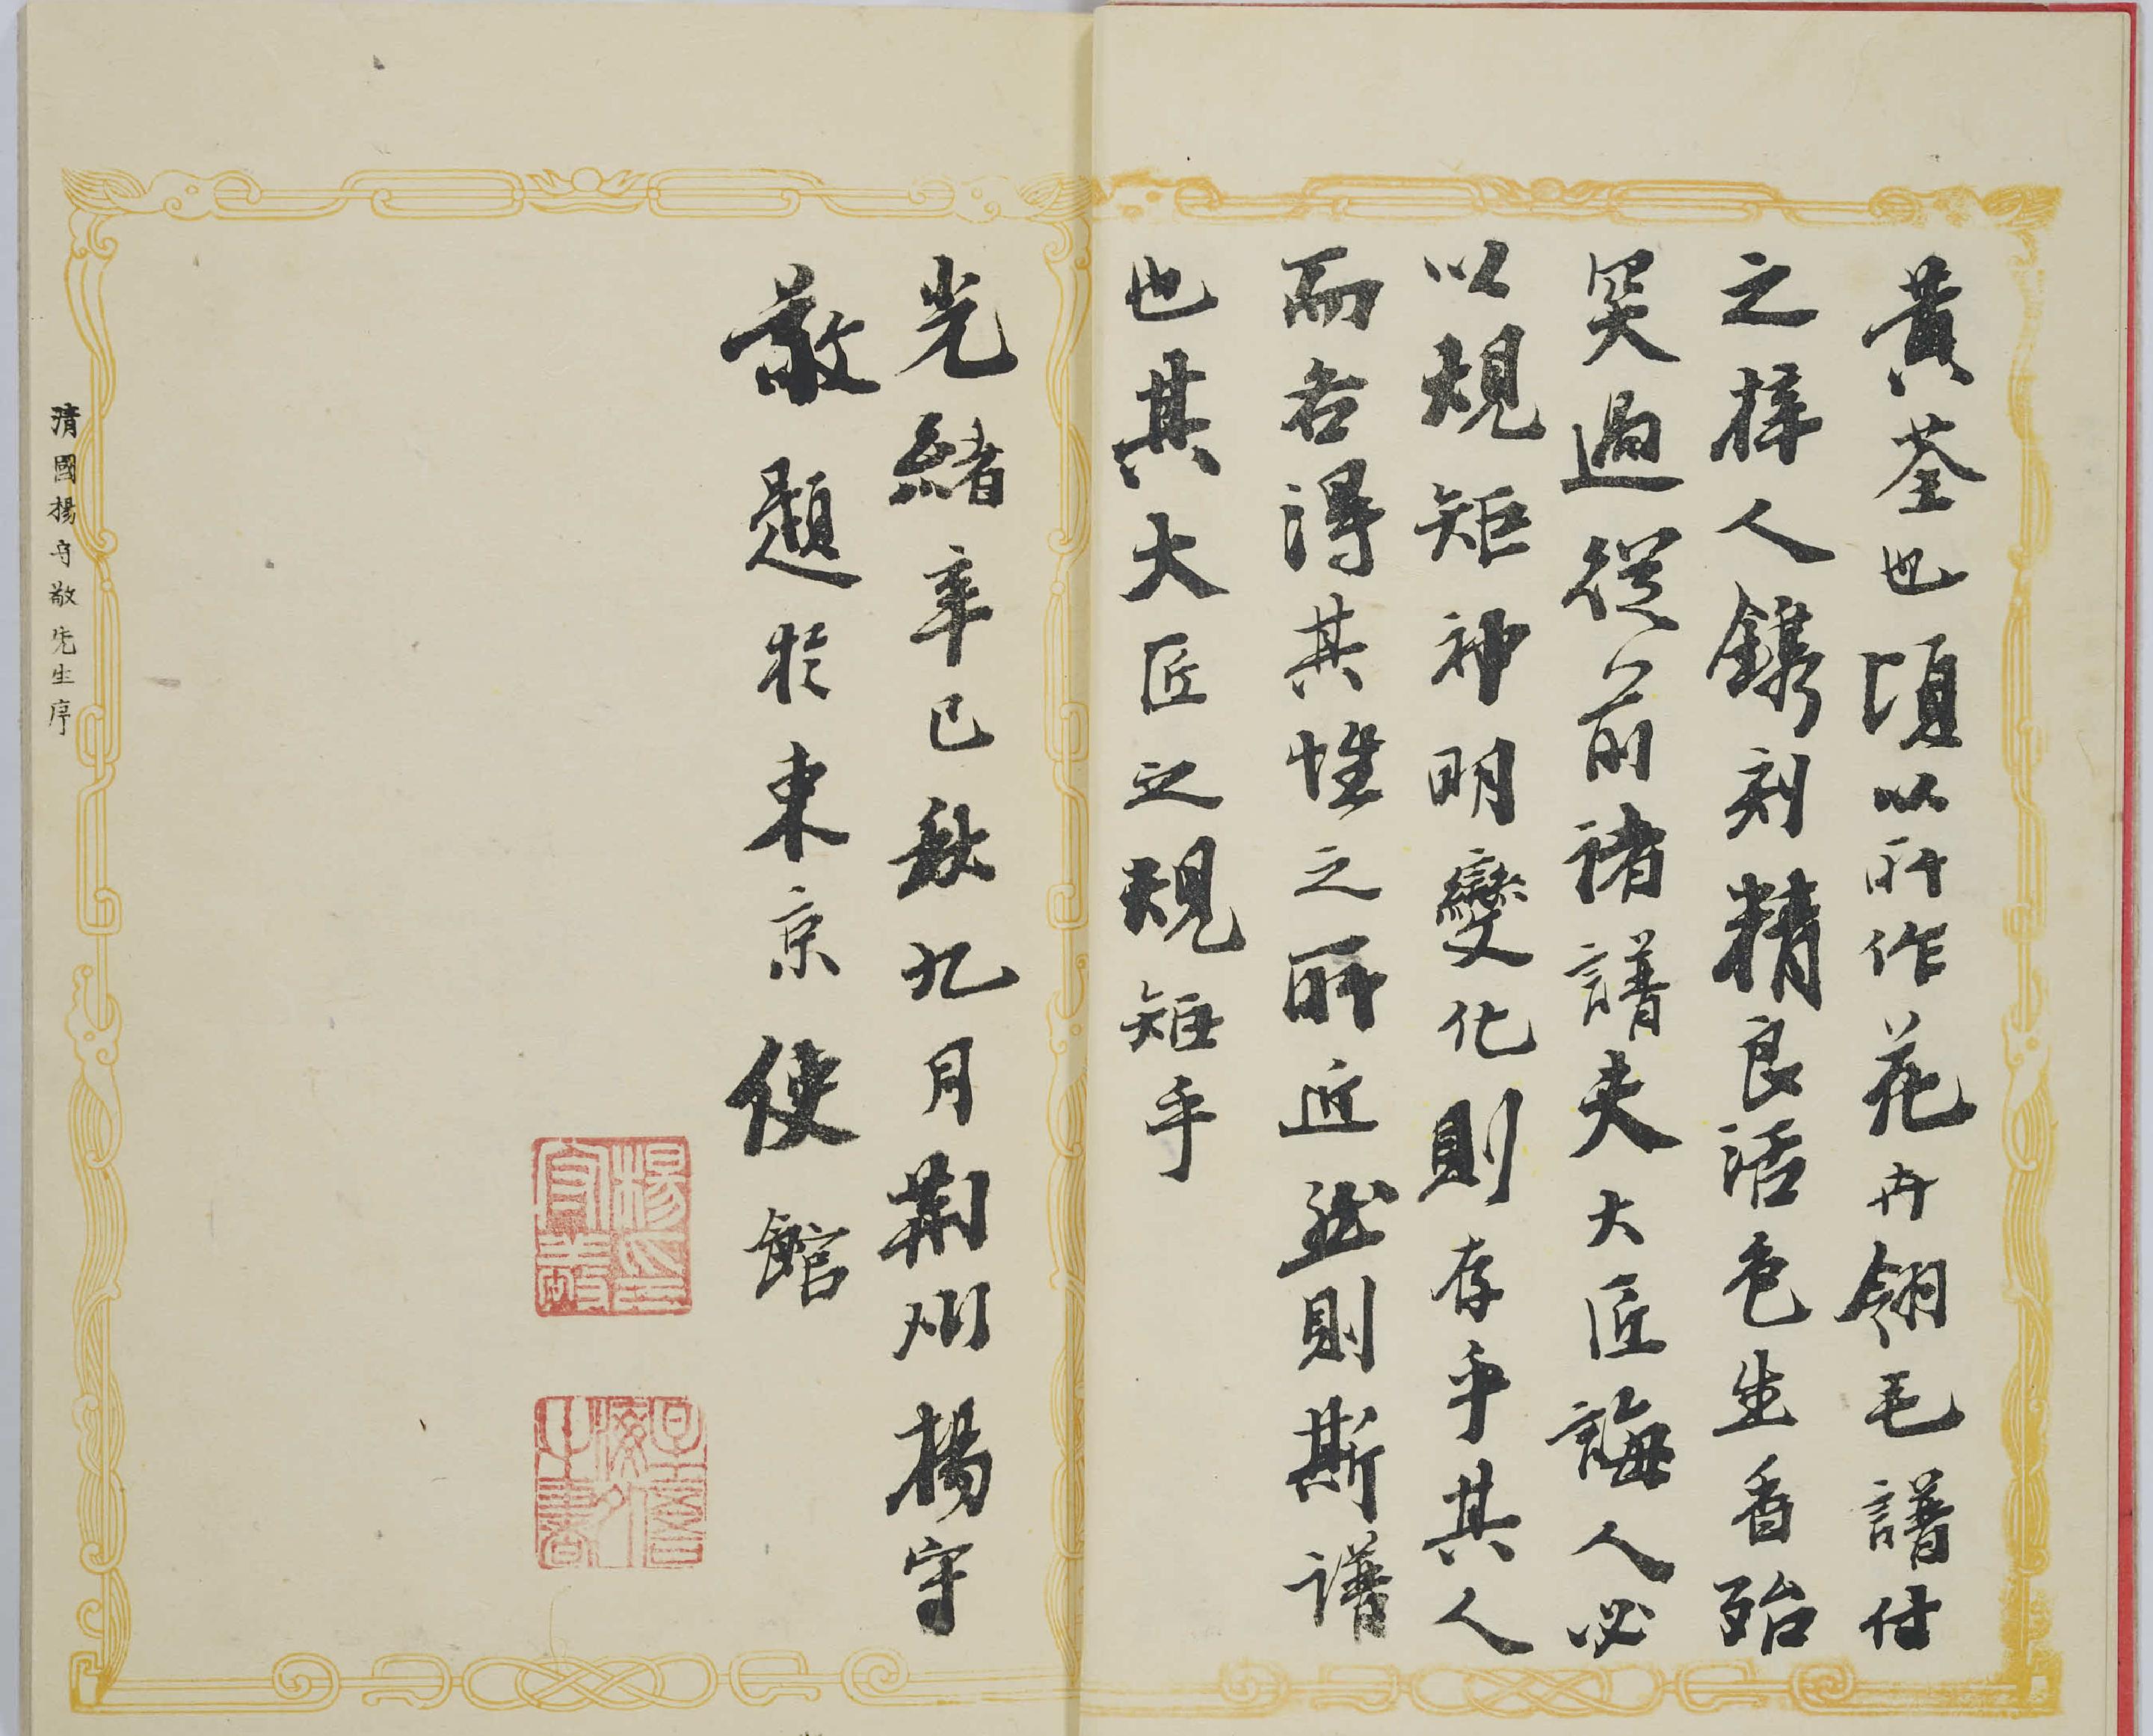 黄荃也頃以所作花卉翎毛譜付
之梓人鐫刻精良活色生香殆
突過從前諸譜夫大匠誨人必
以規矩神明變化則存乎其人
而各得其性之所近然則斯譜
也其大匠之規矩乎
光緒辛巳秋九月荊州楊守
敬題於東京使館
楊印守敬
清國楊守敬先生序